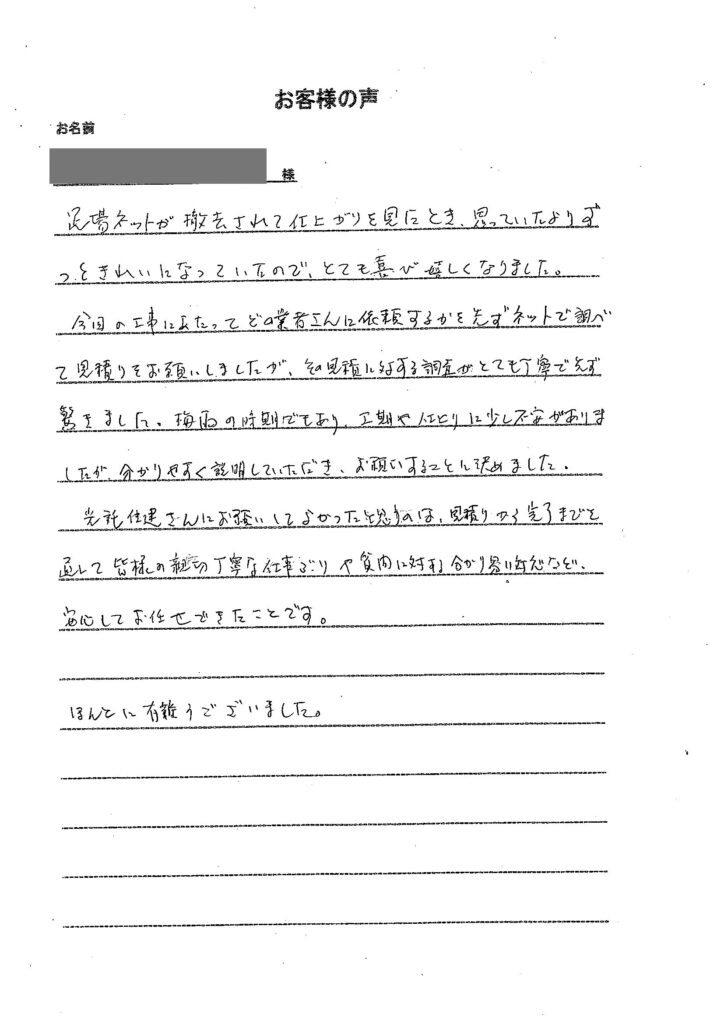 お客様の声
お名前
様
足場ネットが撤去されて仕上がりを見たとき、思っていたよりず
っときれいになっていたので、とても喜び嬉しくなりました。
今回の工事にあたってどの業者さんに依頼するかを先ずネットで調べ
て見積りをお願いしましたが、その見積に対する調査がとても丁寧で先ず
驚きました。梅雨の時期でもあり、工期や仕上りに少し不安がありま
したが、分かりやすく説明していただき、お願いすることに決めました。
住建さんにお願いしてよかったと思うのは、見積りから完了までを
通して皆様の親切丁寧な仕事ぶりや質問に対する分かり易い対応など、
安心してお任せできたことです。
ほんとに有難うございました。